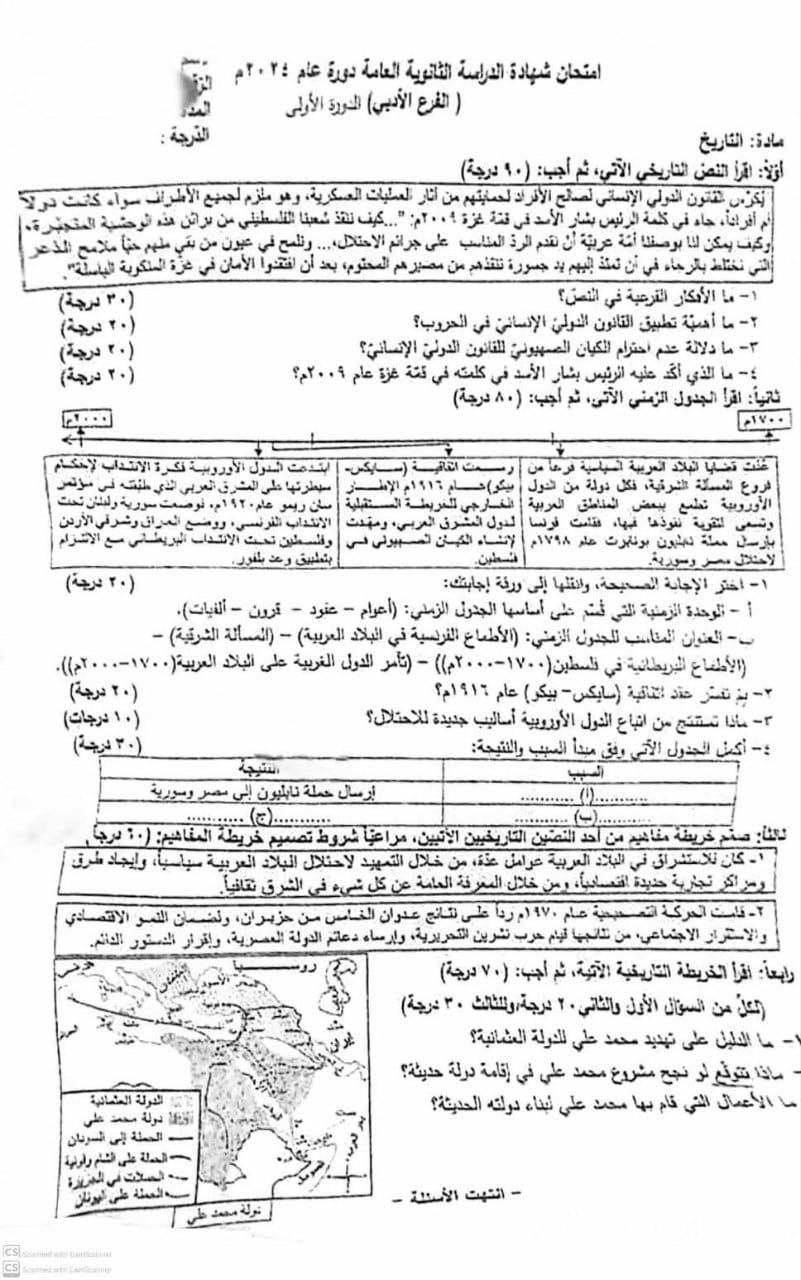 امتحان شهادة الدراسة الثانوية العامة دورة عام ٢٠٢٤م
( الفرع الأدبي) الدورة الأولى
الدرجة :
مادة: التاريخ
أولاً: اقرأ النص التاريخي الآتي، ثم أجب: (٩٠ درجة)
يُكرّس القانون الدولي الإنساني لصالح الأفراد لحمايتهم من آثار العمليات العسكرية، وهو ملزم لجميع الأطراف سواء كانت دولاً
أم أفراداً، جاء في كلمة الرئيس بشار الأسد في قمّة غزة ٢٠٠٩م: "...كيف ننقذ شعبنا الفلسطيني من براثن هذه الوحشية المتجبّرة،
وكيف يمكن لنا بوصفنا أمّة عربيّة أن نقدم الردّ المناسب على جرائم الاحتلال،... ونلمح في عيون من بقي منهم حيّاً ملامح الذعر
التي تختلط بالرجاء في أن تمتدّ إليهم يد جسورة تنقذهم من مصيرهم المحتوم، بعد أن افتقدوا الأمان في غزّة المنكوبة الباسلة".
١- ما الأفكار الفرعية في النصّ؟ (٣٠ درجة)
٢- ما أهميّة تطبيق القانون الدوليّ الإنسانيّ في الحروب؟ (٢٠ درجة)
٣- ما دلالة عدم احترام الكيان الصهيونيّ للقانون الدوليّ الإنسانيّ؟ (٢٠ درجة)
٤- ما الذي أكّد عليه الرئيس بشار الأسد في كلمته في قمّة غزة عام ٢٠٠٩م؟ (٢٠ درجة)
ثانياً: اقرأ الجدول الزمني الآتي، ثم أجب: (٨٠ درجة)
١٧٠٠م
٢٠٠٠م
عُدّت قضايا البلاد العربية السياسية فرعاً من
فروع المسألة الشرقية، فكل دولة من الدول
الأوروبية تطمع ببعض المناطق العربية
وتسعى لتقوية نفوذها فيها، فقامت فرنسا
بإرسال حملة نابليون بونابرت عام ١٧٩٨م
لاحتلال مصر وسورية.
رسمت اتفاقية (سايكس-
بيكو) عام ١٩١٦م الإطار
الخارجي للخريطة المستقبلية
لدول المشرق العربي، ومهّدت
لإنشاء الكيان الصهيوني في
فلسطين.
ابتدعت الدول الأوروبية فكرة الانتداب لإحكام
سيطرتها على المشرق العربي الذي طبّقته في مؤتمر
سان ريمو عام ١٩٢٠م، فوضعت سورية ولبنان تحت
الانتداب الفرنسي، ووضع العراق وشرقي الأردن
وفلسطين تحت الانتداب البريطاني مع الالتزام
بتطبيق وعد بلفور.
١- اختر الإجابة الصحيحة، وانقلها إلى ورقة إجابتك: (٢٠ درجة)
أ - الوحدة الزمنية التي قُسّم على أساسها الجدول الزمني: (أعوام – عقود – قرون – ألفيات).
ب- العنوان المناسب للجدول الزمني: (الأطماع الفرنسية في البلاد العربية) – (المسألة الشرقية) –
(الأطماع البريطانية في فلسطين(١٧٠٠-٢٠٠٠م)) – (تآمر الدول الغربية على البلاد العربية(١٧٠٠-٢٠٠٠م)).
٢- بمَ تفسّر عقد اتفاقية (سايكس- بيكو) عام ١٩١٦م؟ (٢٠ درجة)
٣- ماذا تستنتج من اتباع الدول الأوروبية أساليب جديدة للاحتلال؟ (١٠ درجات)
٤- أكمل الجدول الآتي وفق مبدأ السبب والنتيجة: (٣٠ درجة)
السبب النتيجة
..........(أ) .......... إرسال حملة نابليون إلى مصر وسورية
..........(ب) .......... ..........(ج) ..........
ثالثاً: صمّم خريطة مفاهيم من أحد النصّين التاريخيين الآتيين، مراعياً شروط تصميم خريطة المفاهيم: (٦٠ درجة)
١- كان للاستشراق في البلاد العربية عوامل عدّة، من خلال التمهيد لاحتلال البلاد العربية سياسياً، وإيجاد طرق
ومراكز تجارية جديدة اقتصادياً، ومن خلال المعرفة العامة عن كل شيء في الشرق ثقافياً.
٢- قامت الحركة التصحيحية عام ١٩٧٠م رداً على نتائج عدوان الخامس من حزيران، ولضمان النمو الاقتصادي
والاستقرار الاجتماعي، من نتائجها قيام حرب تشرين التحريرية، وإرساء دعائم الدولة العصرية، وإقرار الدستور الدائم.
رابعاً: اقرأ الخريطة التاريخية الآتية، ثم أجب: (٧٠ درجة)
(لكلّ من السؤال الأول والثاني ٢٠ درجة، وللثالث ٣٠ درجة)
١- ما الدليل على تهديد محمد علي للدولة العثمانية؟
- ماذا تتوقّع لو نجح مشروع محمد علي في إقامة دولة حديثة؟
ما الأعمال التي قام بها محمد علي لبناء دولته الحديثة؟
روسيا
إيران
الدولة العثمانية
دولة محمد علي
الحملة إلى السودان
الحملة على الشام وقونية
الحملات في الجزيرة
الحملة على اليونان
دولة محمد علي
- انتهت الأسئلة -
CS Scanned with CamScanner
CS Scanned with CamScanner